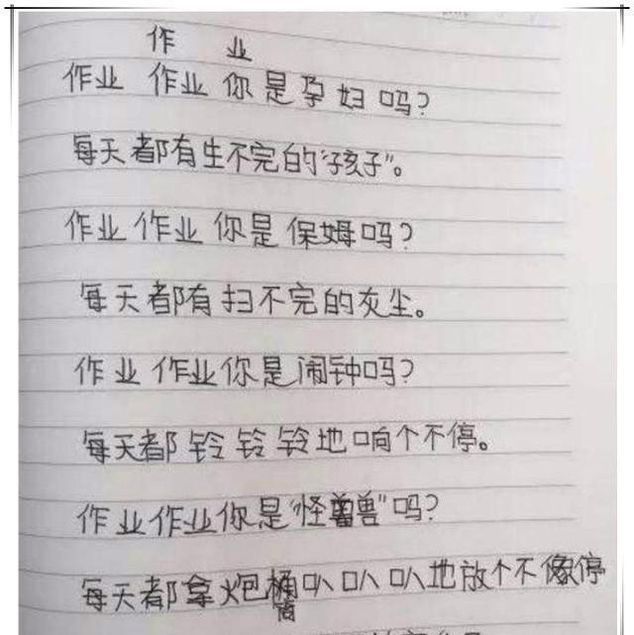 作 业
作业 作业 你是孕妇吗?
每天都有生不完的“孩子”。
作业 作业 你是保姆吗?
每天都有扫不完的灰尘。
作业 作业你是闹钟吗?
每天都铃铃铃地响个不停。
作业作业你是“怪兽”吗?
每天都拿炮桶叭叭叭地放个不停